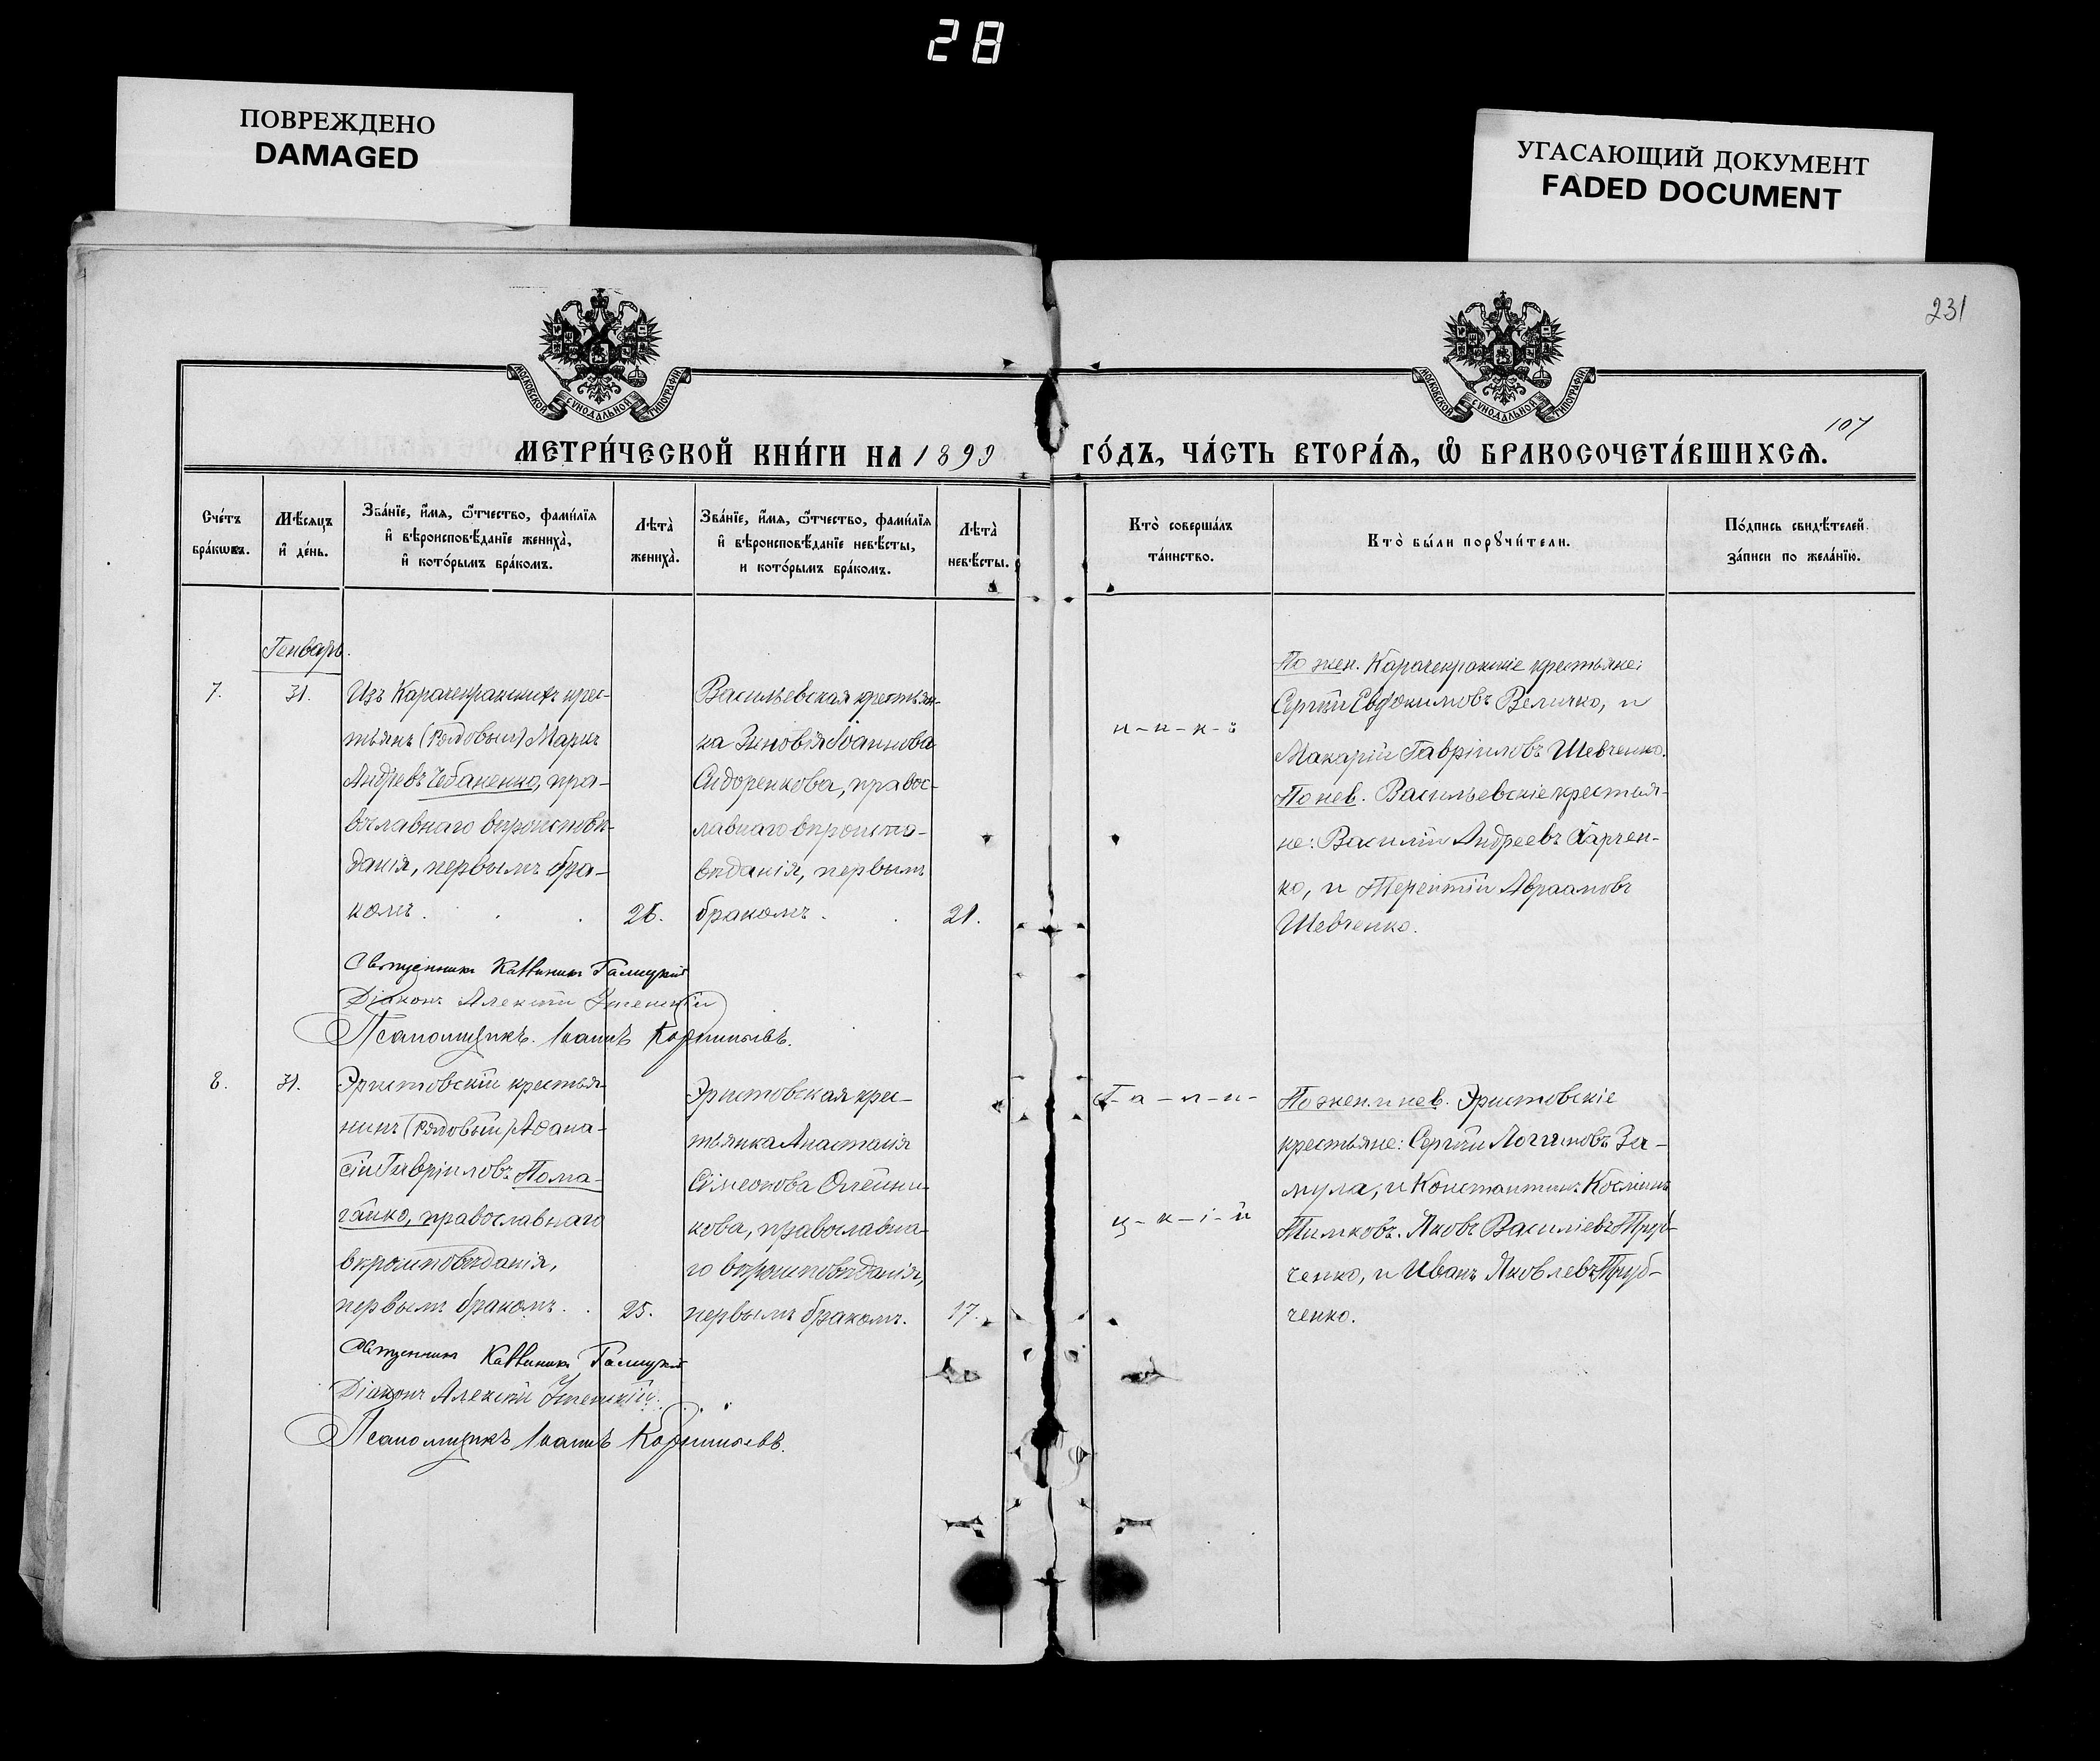 28
ПОВРЕЖДЕНО
DAMAGED
УГАСАЮЩИЙ ДОКУМЕНТ
FADED DOCUMENT
231
МОСКОВСКОЙ СѴНОДАЛЬНОЙ ТИПОГРАФІИ
МОСКОВСКОЙ СѴНОДАЛЬНОЙ ТИПОГРАФІИ
107
МЕТРИ́ЧЕСКОЙ КНИ́ГИ НА 1899 ГО́ДЪ, ЧА́СТЬ ВТОРА́Я, Ѡ БРАКОСОЧЕТА́ВШИХСЯ.
Сче́тъ
бра́кѡвъ.
Мѣ́сяцъ
и҆ де́нь.
Зва́нїе, и҆́мя, ѻ҆́тчество, фами́лїя
и҆ вѣроисповѣ́данїе жениха̀,
и҆ кото́рымъ бра́комъ.
Лѣта̀
жениха̀.
Зва́нїе, и҆́мя, ѻ҆́тчество, фами́лїя
и҆ вѣроисповѣ́данїе невѣ́сты,
и кото́рымъ бра́комъ.
Лѣта̀
невѣ́сты.
Кто̀ соверша́лъ
та́инство.
Кто̀ бы́ли порꙋчи́тели.
По́дпись свидѣ́телей
за́писи по жела́нїю.
Генварь.
7.
31.
Изъ Карачекракскихъ крес-
тьянъ (Рядовый) Маркъ
Андреевъ Чебаненко, пра-
вославнаго вѣроисповѣ-
данія, первымъ бра-
комъ.
26.
Васильевская крестьян-
ка Зиновія Іоаннова
Сидоренкова, правос-
лавнаго вѣроиспо-
вѣданія, первымъ
бракомъ.
21.
По жен. Карачекракскіе крестьяне:
Сергій Евдокимовъ Величко, и
Макарій Гавріиловъ Шевченко.
По нев. Васильевскіе крестья-
не: Василій Андреевъ Харчен-
ко, и Терентій Авраамовъ
Шевченко.
Священникъ Каллиникъ Галицкій
Діаконъ Алексій Успенскій
Псаломщикъ Іоаннъ
8.
31.
Эристовскій крестья-
нинъ (Рядовый) Аѳана-
сій Гавріиловъ Пома-
гайко, православнаго
вѣроисповѣданія,
первымъ бракомъ.
25.
Эристовская крес-
тьянка Анастасія
Сѵмеонова Олейни-
кова, православна-
го вѣроисповѣданія,
первымъ бракомъ.
17.
Г-а-л-и-
ц-к-і-й
По жен. и нев. Эристовскіе
крестьяне: Сергій Логгиновъ За-
мула, и Константинъ Косминъ
Тимковъ. Яковъ Василіевъ Труб-
ченко, и Иванъ Яковлевъ Труб-
ченко.
Священникъ Каллиникъ Галицкій
Діаконъ Алексій Успенскій
Псаломщикъ Іоаннъ